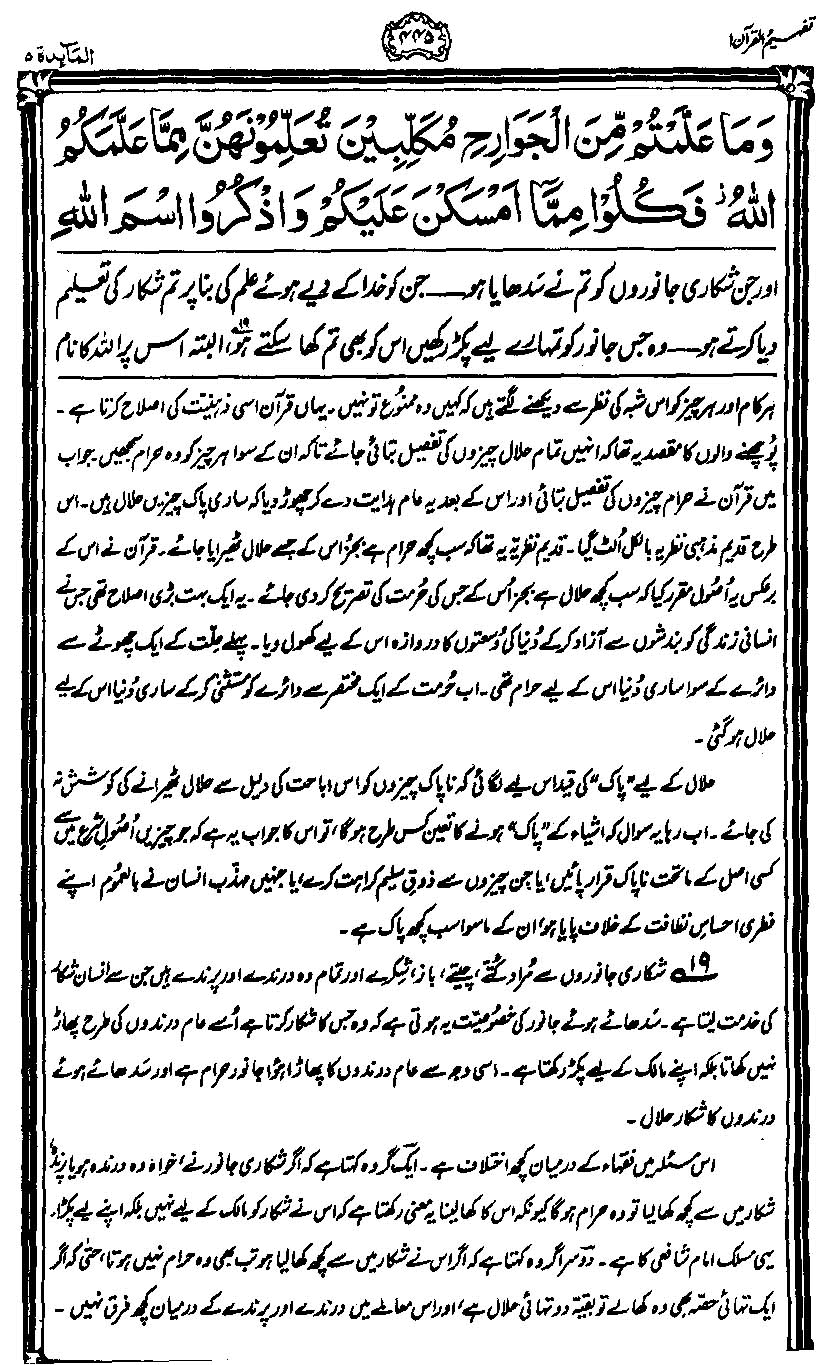 تفہیم القرآن ۱
۴۴۵
المآئدۃ ۵
وَمَا عَلَّمْتُمْ مِّنَ الْجَوَارِحِ مُكَلِّبِيْنَ تُعَلِّمُوْنَهُنَّ مِمَّا عَلَّمَكُمُ
اللّٰهُ ۫ فَكُلُوْا مِمَّاۤ اَمْسَكْنَ عَلَيْكُمْ وَاذْكُرُوا اسْمَ اللّٰهِ
اور جن شکاری جانوروں کو تم نے سَدھایا ہو ــــ جن کو خدا کے دیے ہوئے علم کی بنا پر تم شکار کی تعلیم
دیا کرتے ہو ــــ وہ جس جانور کو تمہارے لیے پکڑ رکھیں اس کو بھی تم کھا سکتے ہو،۱۹ البتہ اس پر اللہ کا نام
ہر کام اور ہر چیز کو اس شبہ کی نظر سے دیکھنے لگتے ہیں کہ کہیں وہ ممنوع تو نہیں۔ یہاں قرآن اسی ذہنیت کی اصلاح کرتا ہے۔
پُوچھنے والوں کا مقصد یہ تھا کہ انہیں تمام حلال چیزوں کی تفصیل بتائی جائے تاکہ ان کے سوا ہر چیز کو وہ حرام سمجھیں۔ جواب
میں قرآن نے حرام چیزوں کی تفصیل بتائی اور اس کے بعد یہ عام ہدایت دے کر چھوڑ دیا کہ ساری پاک چیزیں حلال ہیں۔ اس
طرح قدیم مذہبی نظریہ بالکل اُلٹ گیا۔ قدیم نظریّہ یہ تھا کہ سب کچھ حرام ہے بجز اس کے جسے حلال ٹھیرایا جائے۔ قرآن نے اس کے
برعکس یہ اُصول مقرر کیا کہ سب کچھ حلال ہے بجز اُس کے جس کی حُرمت کی تصریح کر دی جائے۔ یہ ایک بہت بڑی اصلاح تھی جس نے
انسانی زندگی کو بندشوں سے آزاد کر کے دُنیا کی وُسعتوں کا دروازہ اس کے لیے کھول دیا۔ پہلے حِلّت کے ایک چھوٹے سے
دائرے کے سوا ساری دُنیا اس کے لیے حرام تھی۔ اب حُرمت کے ایک مختصر سے دائرے کو مستثنیٰ کر کے ساری دُنیا اس کے لیے
حلال ہو گئی۔
حلال کے لیے ”پاک“ کی قید اس لیے لگائی کہ ناپاک چیزوں کو اس اباحت کی دلیل سے حلال ٹھیرانے کی کوشش نہ
کی جائے۔ اب رہا یہ سوال کہ اشیاء کے ”پاک“ ہونے کا تعین کس طرح ہوگا، تو اس کا جواب یہ ہے کہ جو چیزیں اُصولِ شرع میں سے
کسی اصل کے ماتحت ناپاک قرار پائیں، یا جن چیزوں سے ذوقِ سلیم کراہت کرے، یا جنہیں مہذّب انسان نے بالعموم اپنے
فطری احساسِ نظافت کے خلاف پایا ہو، ان کے ماسوا سب کچھ پاک ہے۔
۱۹؎ شکاری جانوروں سے مُراد کتّے، چیتے، باز، شِکرے اور تمام وہ درندے اور پرندے ہیں جن سے انسان شکار
کی خدمت لیتا ہے۔ سَدھائے ہوئے جانور کی خصوصیّت یہ ہوتی ہے کہ وہ جس کا شکار کرتا ہے اُسے عام درندوں کی طرح پھاڑ
نہیں کھاتا بلکہ اپنے مالک کے لیے پکڑ رکھتا ہے۔ اسی وجہ سے عام درندوں کا پھاڑا ہوا جانور حرام ہے اور سَدھائے ہوئے
درندوں کا شکار حلال۔
اس مسئلہ میں فقہاء کے درمیان کچھ اختلاف ہے۔ ایک گروہ کہتا ہے کہ اگر شکاری جانور نے، خواہ وہ درندہ ہو یا پرندہ،
شکار میں سے کچھ کھا لیا تو وہ حرام ہو گا کیونکہ اس کا کھا لینا یہ معنی رکھتا ہے کہ اس نے شکار کو مالک کے لیے نہیں بلکہ اپنے لیے پکڑا۔
یہی مسلک امام شافعی کا ہے۔ دوسرا گروہ کہتا ہے کہ اگر اس نے شکار میں سے کچھ کھا لیا ہو تب بھی وہ حرام نہیں ہوتا، حتیٰ کہ اگر
ایک تہائی حصّہ بھی وہ کھا لے تو بقیّہ دو تہائی حلال ہے، اور اس معاملے میں درندے اور پرندے کے درمیان کچھ فرق نہیں۔